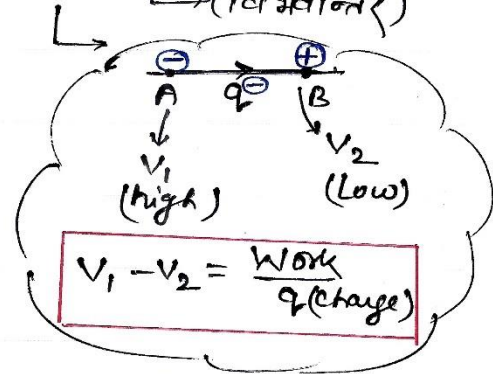 (विभवान्तर)
⊖ ⊕
A q⊖ B
V₁ V₂
(high) (Low)
V₁ - V₂ = Work / q(charge)